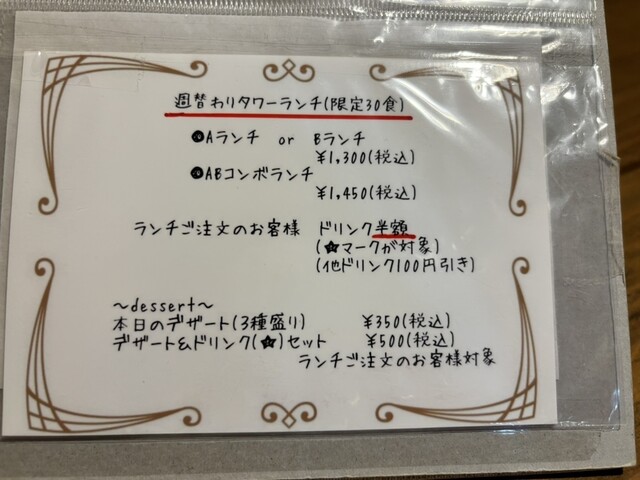 週替わりタワーランチ(限定30食)
●Aランチ or Bランチ
¥1,300(税込)
●ABコンボランチ
¥1,450(税込)
ランチご注文のお客様 ドリンク半額
(★マークが対象)
(他ドリンク100円引き)
～dessert～
本日のデザート(3種盛り) ¥350(税込)
デザート&ドリンク(★)セット ¥500(税込)
ランチご注文のお客様対象